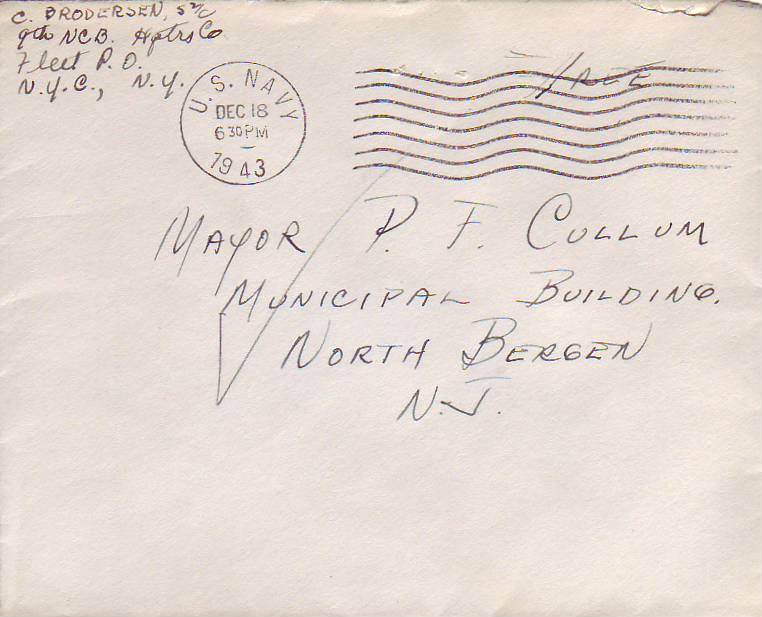 C. BRODERSEN, S 2/C
9th NCB. Hqtrs Co
Fleet P. O.
N.Y.C., N.Y.
U.S. NAVY
DEC 18
6 30 PM
1943
FREE
MAYOR P. F. CULLUM
MUNICIPAL BUILDING.
NORTH BERGEN
N.J.